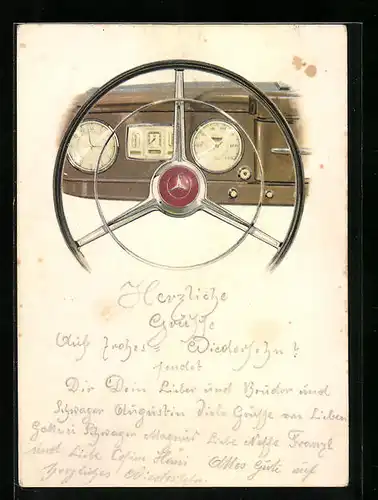 Herzliche
Grüsse
Auf frohes = Wiedersehn!
sendet
Dir Dein Lieber und Bruder und
Schwager Augustin Viele Grüsse von Lieben
Schwager Liebe Neffe Franzl
und Liebe Hansi Alles Gute auf
herzliches Wiedersehn